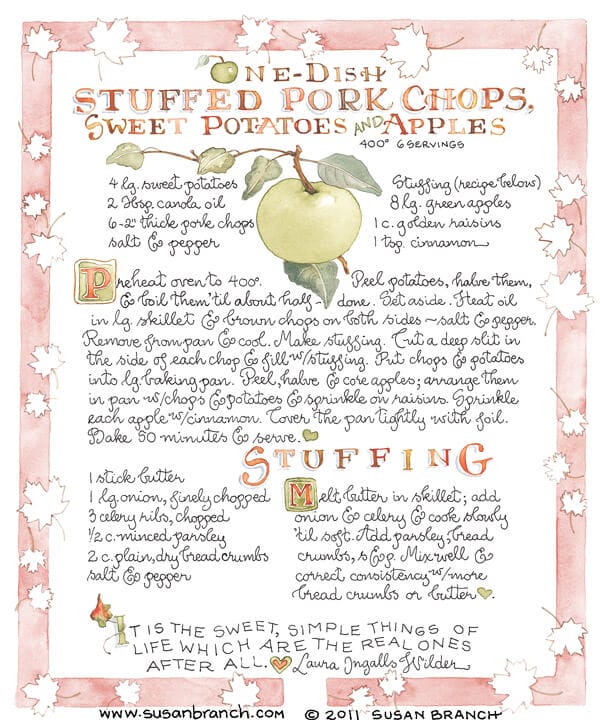 ONE-DISH
STUFFED PORK CHOPS,
SWEET POTATOES AND APPLES
400° 6 SERVINGS
4 lg. sweet potatoes
2 Tbsp. canola oil
6-2" thick pork chops
salt & pepper
Stuffing (recipe below)
8 lg. green apples
1 c. golden raisins
1 tsp. cinnamon
Preheat oven to 400°. Peel potatoes, halve them,
& boil them 'til about half-done. Set aside. Heat oil
in lg. skillet & brown chops on both sides ~ salt & pepper.
Remove from pan & cool. Make stuffing. Cut a deep slit in
the side of each chop & fill w/stuffing. Put chops & potatoes
into lg. baking pan. Peel, halve & core apples; arrange them
in pan w/chops & potatoes & sprinkle on raisins. Sprinkle
each apple w/cinnamon. Cover the pan tightly with foil.
Bake 50 minutes & serve.
STUFFING
1 stick butter
1 lg. onion, finely chopped
3 celery ribs, chopped
1/2 c. minced parsley
2 c. plain, dry bread crumbs
salt & pepper
Melt butter in skillet; add
onion & celery & cook slowly
'til soft. Add parsley, bread
crumbs, s & p. Mix well &
correct consistency w/more
bread crumbs or butter.
IT IS THE SWEET, SIMPLE THINGS OF
LIFE WHICH ARE THE REAL ONES
AFTER ALL. Laura Ingalls Wilder
www.susanbranch.com © 2011 SUSAN BRANCH